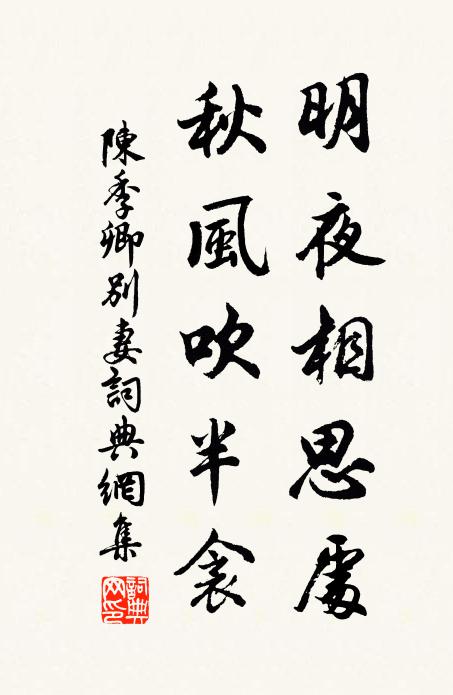 明夜相思處
秋風吹半衾
陳季卿別妻詞典網集
詞典
网印